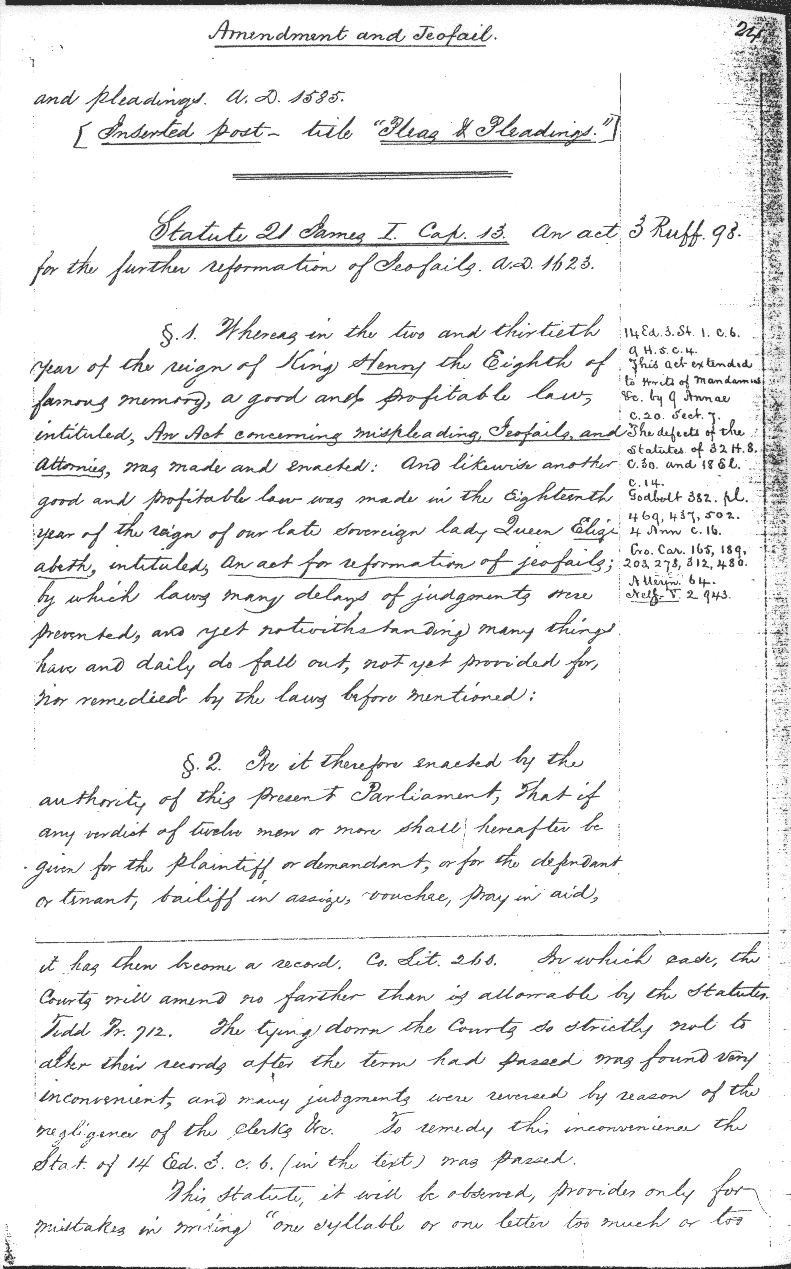 Amendment and Jeofail.
24
and pleadings. A.D. 1585.
[Inserted post - title "Pleas & Pleadings."]
Statute 21 James I. Cap. 13. An act
for the further reformation of Jeofails. A.D. 1623.
3 Ruff. 98.
§.1. Whereas in the two and thirtieth
year of the reign of King Henry the Eighth of
famous memory, a good and profitable law,
intituled, An Act concerning mispleading, Jeofails, and
Attornies, was made and enacted: And likewise another
good and profitable law was made in the Eighteenth
year of the reign of our late sovereign lady Queen Eliz-
abeth, intituled, An act for reformation of jeofails;
by which laws many delays of judgments were
prevented, and yet notwithstanding many things
have and daily do fall out, not yet provided for,
nor remedied by the laws before mentioned:
14 Ed. 3. St. 1. c. 6.
9 H. 5. c. 4.
This act extended
to writs of mandamus
&c. by 9 Annae
c. 20. Sect. 7.
The defects of the
Statutes of 32 H. 8.
c. 30. and 18 El.
c. 14.
Godbolt 382. pl.
469, 437, 502.
4 Ann c. 16.
Cro. Car. 165, 189,
203, 278, 312, 480.
64.
2 943.
§.2. Be it therefore enacted by the
authority of this present Parliament, That if
any verdict of twelve men or more shall hereafter be
given for the plaintiff or demandant, or for the defendant
or tenant, bailiff in assize, vouchee, pray in aid,
it has then become a record. Co. Lit. 260. In which case, the
Courts will amend no farther than is allowable by the Statutes.
Tidd Pr. 712. The tying down the Courts so strictly not to
alter their records after the term had passed was found very
inconvenient, and many judgments were reversed by reason of the
negligence of the clerks &c. To remedy this inconvenience the
Stat. of 14 Ed. 3. c. 6. (in the text) was passed.
This Statute, it will be observed, provides only for
mistakes in writing "one syllable or one letter too much or too